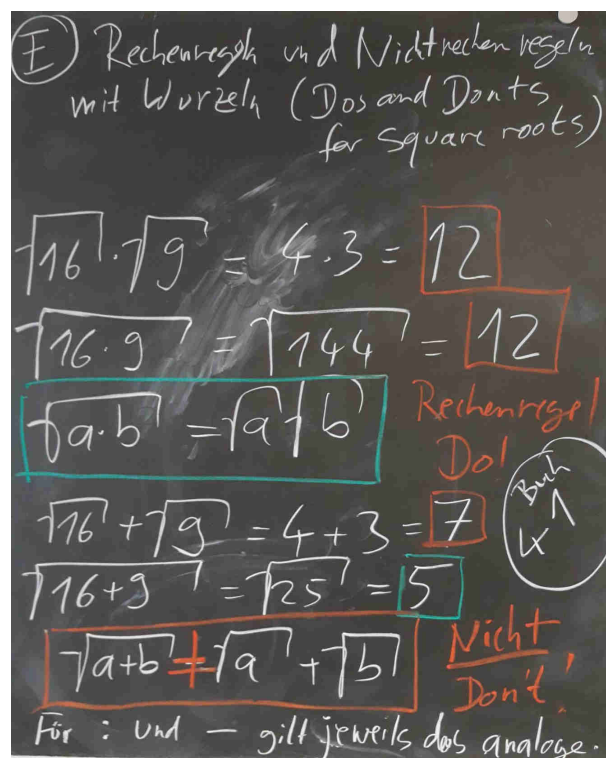 I Rechenregeln und Nichtrechenregeln
mit Wurzeln (Dos and Donts
for Square roots)
√16 · √9 = 4 · 3 = 12
√16·9 = √144 = 12
√a·b = √a √b
Rechenregel
Do!
√16 + √9 = 4 + 3 = 7
Buch
√16+9 = √25 = 5
√a+b ≠ √a + √b
Nicht
Don't!
Für : und – gilt jeweils das analoge.